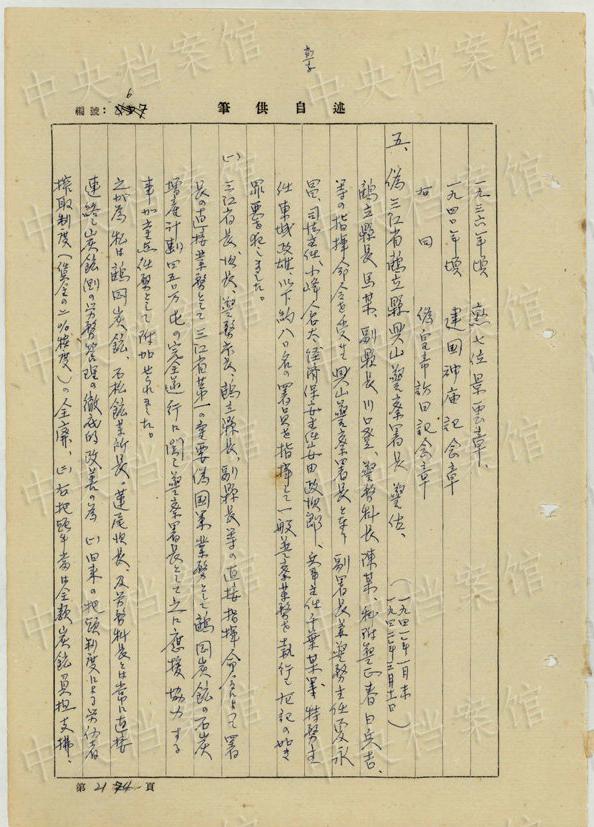 中央档案馆
編號：6
筆供自述
一九三六年頃 勲七位景雲章、
一九四〇年頃 建国神庙記念章
右同 偽皇帝訪日記念章
五、偽三江省鶴立縣興山警察署長 警佐、
(一九四一年一月末
一九四三年三月十一日)
鶴立縣長馬某、副縣長川口登、警務科長陳某、
等の指揮命令を受け興山警察署長となり副署長兼警務主任
以下約八〇名の署員を指揮して一般警察業務を執行し左記の如き
罪悪を犯しました。
(一) 三江省長、次長、警務廳長、鶴立縣長、副縣長等の直接指揮命令によって署
長の直接業務として三江省第一の重要偽国策業務として鶴岡炭鉱の石炭
増産計劃四五〇万屯の完全遂行に関し警察署長として之に應援協力する
事が重要任務として附加せられました。
之が為私は鶴岡炭鉱、石松鉱業所長、蓮尾次長、及労務科長とは常に直接
連絡し炭鉱側の労務管理の徹底的改善の為(一)旧来の把頭制度による労働者
搾取制度(賃金の二%程度)の全廃、(二)右把頭手当は全額炭鉱負担支拂、
第21頁